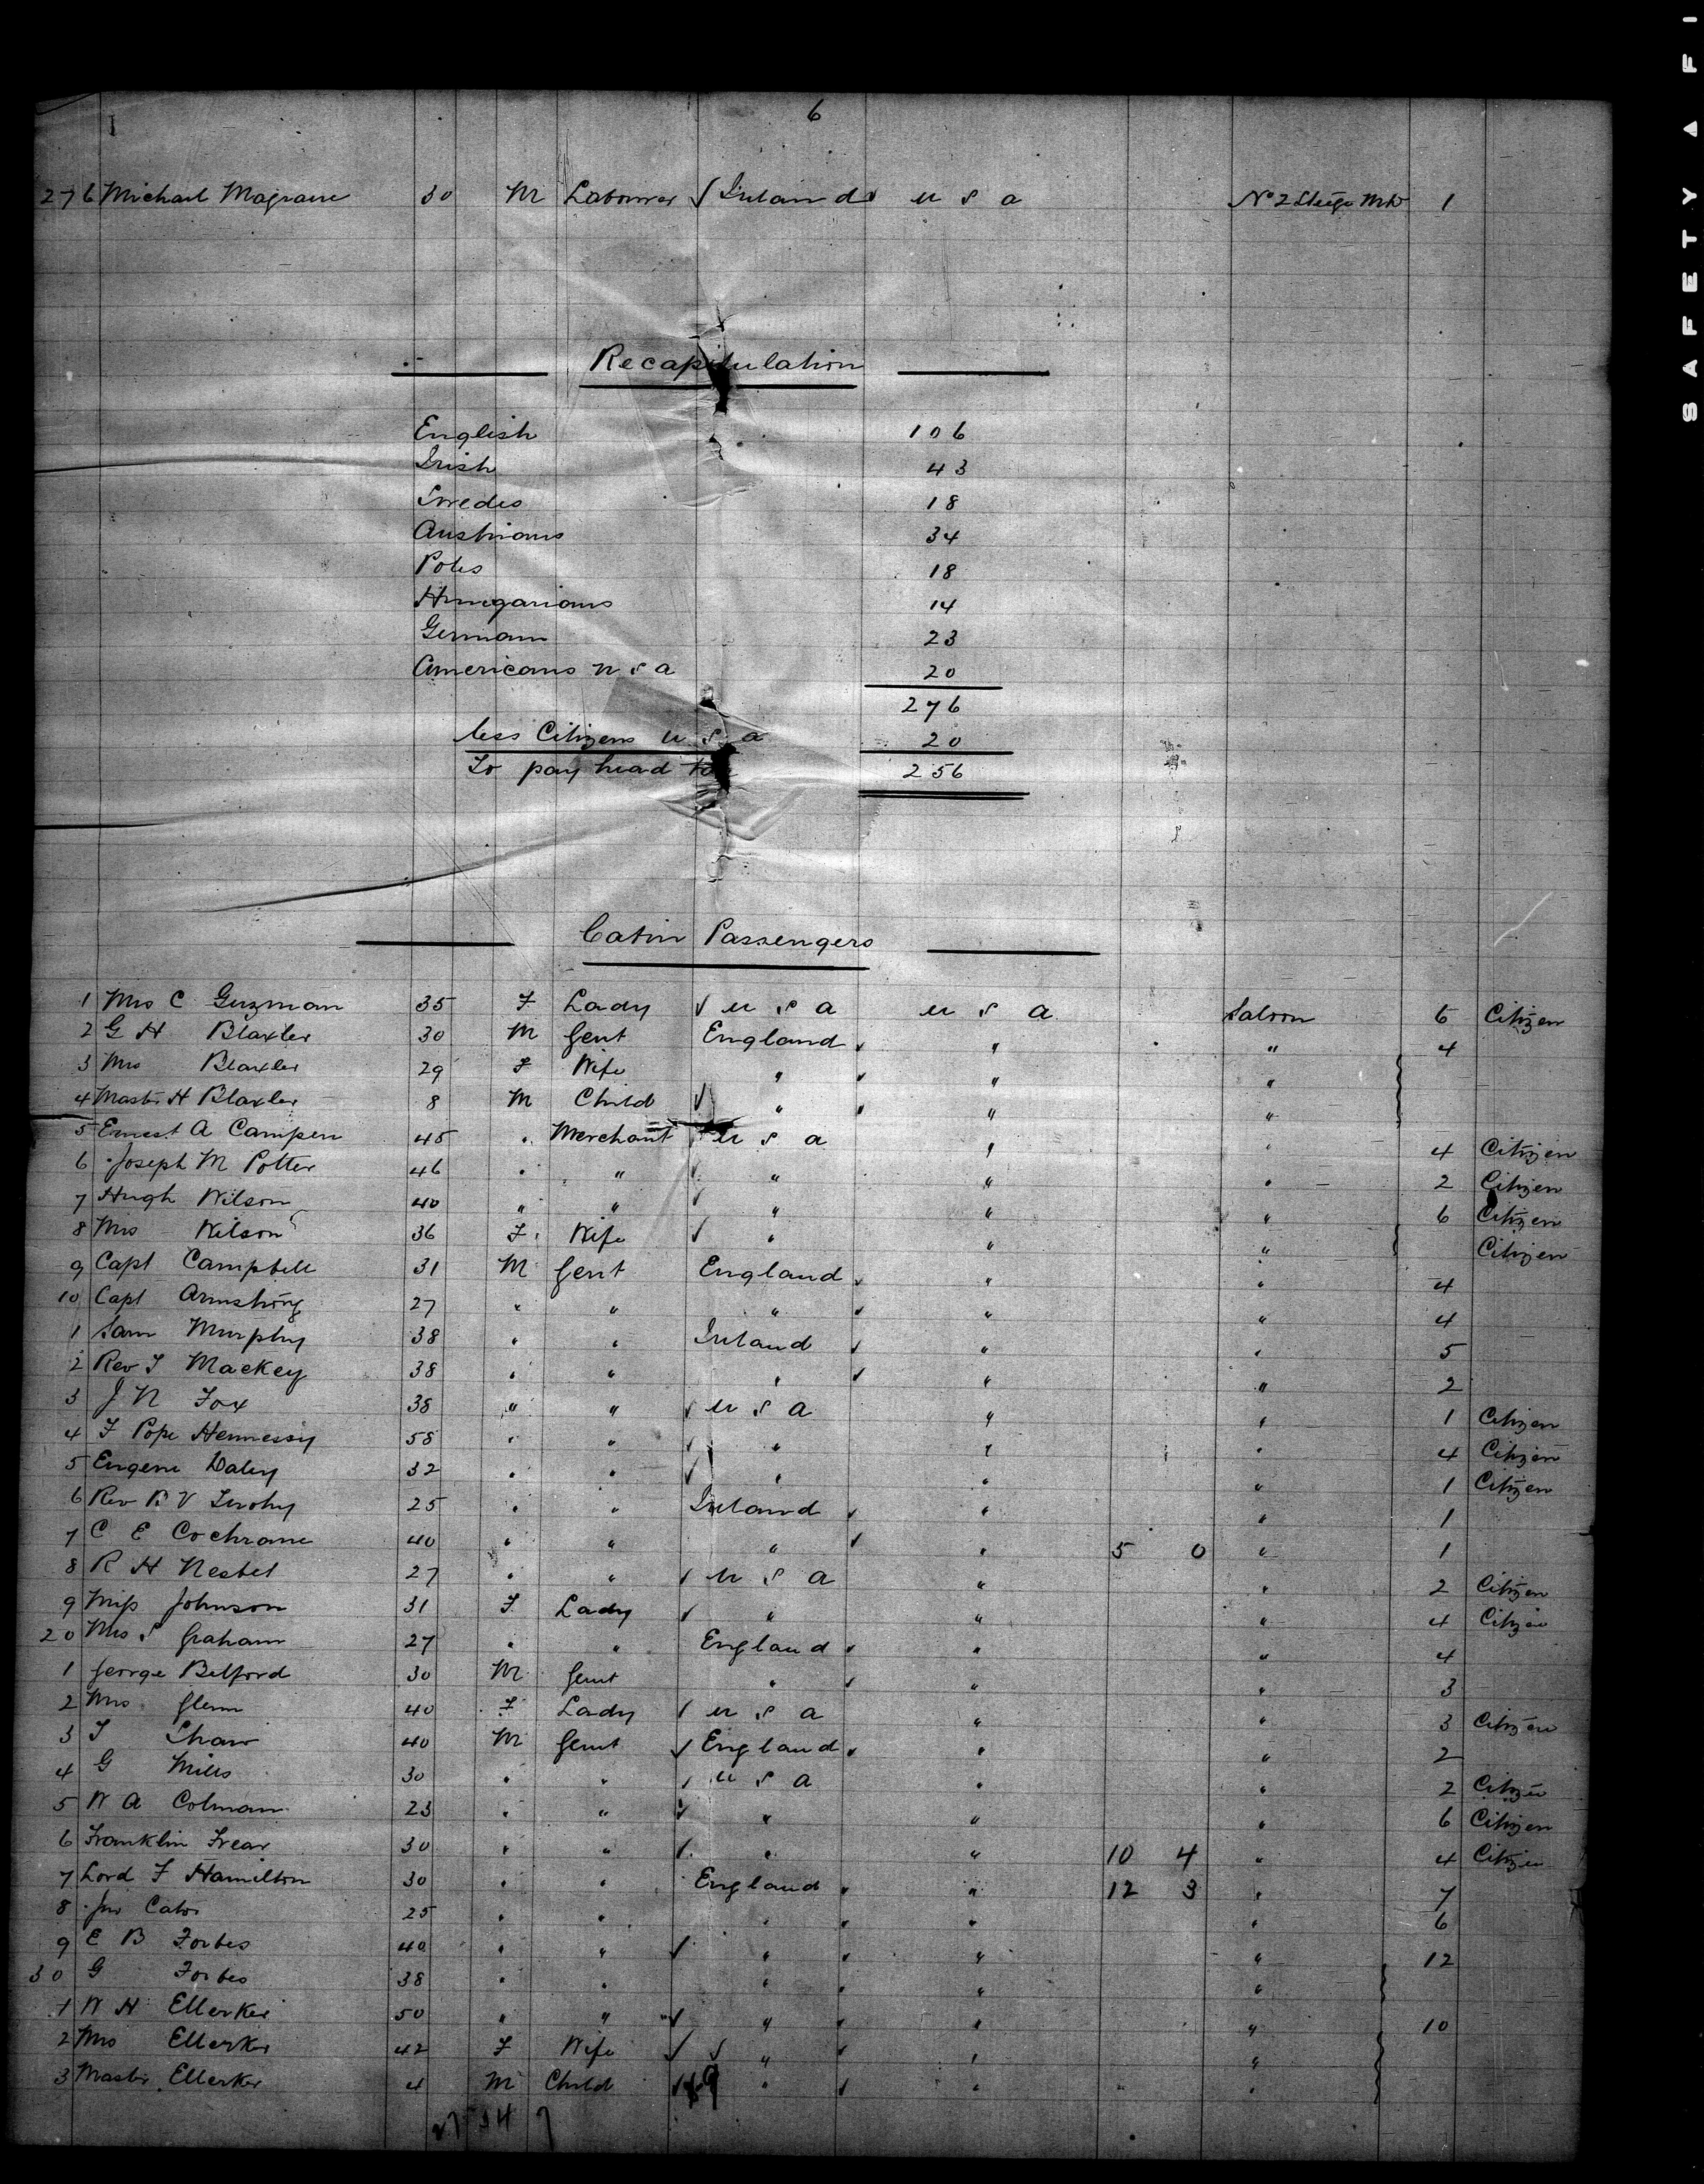 6
276 Michael Magraine 30 M Labourer √ Ireland u s a No 2 Steege Mid 1
Recapitulation
English 106
Irish 43
Swedes 18
Austrians 34
Poles 18
Hungarians 14
German 23
Americans u s a 20
276
less Citizens u s a 20
To pay head tax 256
Cabin Passengers
1 Mrs C Guzman 35 F Lady √ u s a u s a Saloon 6 Citizen
2 G H Blaxter 30 M Gent England " " 4
3 Mrs Blaxter 29 F Wife " " "
4 Master H Blaxter 8 M Child √ " " "
5 Ernest A Campen 45 " Merchant u s a " " 4 Citizen
6 Joseph M Potter 46 " " √ " " " 2 Citizen
7 Hugh Wilson 40 " " √ " " " 6 Citizen
8 Mrs Wilson 36 F Wife √ " " " Citizen
9 Capt Campbell 31 M Gent England " " 4
10 Capt Armstrong 27 " " " " " 4
1 Sam Murphy 38 " " Ireland " " 5
2 Rev T Mackey 38 " " " " " 2
3 J N Fox 38 " " √ u s a " " 1 Citizen
4 F Pope Hennessy 58 " " √ " " " 4 Citizen
5 Eugene Daley 32 " " √ " " " 1 Citizen
6 Rev B V 25 " " Ireland " " 1
7 C E Cochrane 40 " " " " 5 0 " 1
8 R H Nesbet 27 " " √ u s a " " 2 Citizen
9 Miss Johnson 31 F Lady √ " " " 4 Citizen
20 Mrs S Graham 27 " " England " " 4
1 George Belford 30 M Gent " " " 3
2 Mrs Glenn 40 F Lady √ u s a " " 3 Citizen
3 T Shaw 40 M Gent √ England " " 2
4 G Mills 30 " " √ u s a " " 2 Citizen
5 W A Colman 23 " " √ " " " 6 Citizen
6 Franklin Frear 30 " " √ " " 10 4 " 4 Citizen
7 Lord F Hamilton 30 " " England " 12 3 " 7
8 Jno Cator 25 " " " " " 6
9 E B Forbes 40 " " √ " " " 12
30 G Forbes 38 " " " " "
1 W H Ellerker 50 " " √ " " " 10
2 Mrs Ellerker 42 F Wife √ √ " " "
3 Master Ellerker 4 M Child √ " " "
SAFETY ▲ FI